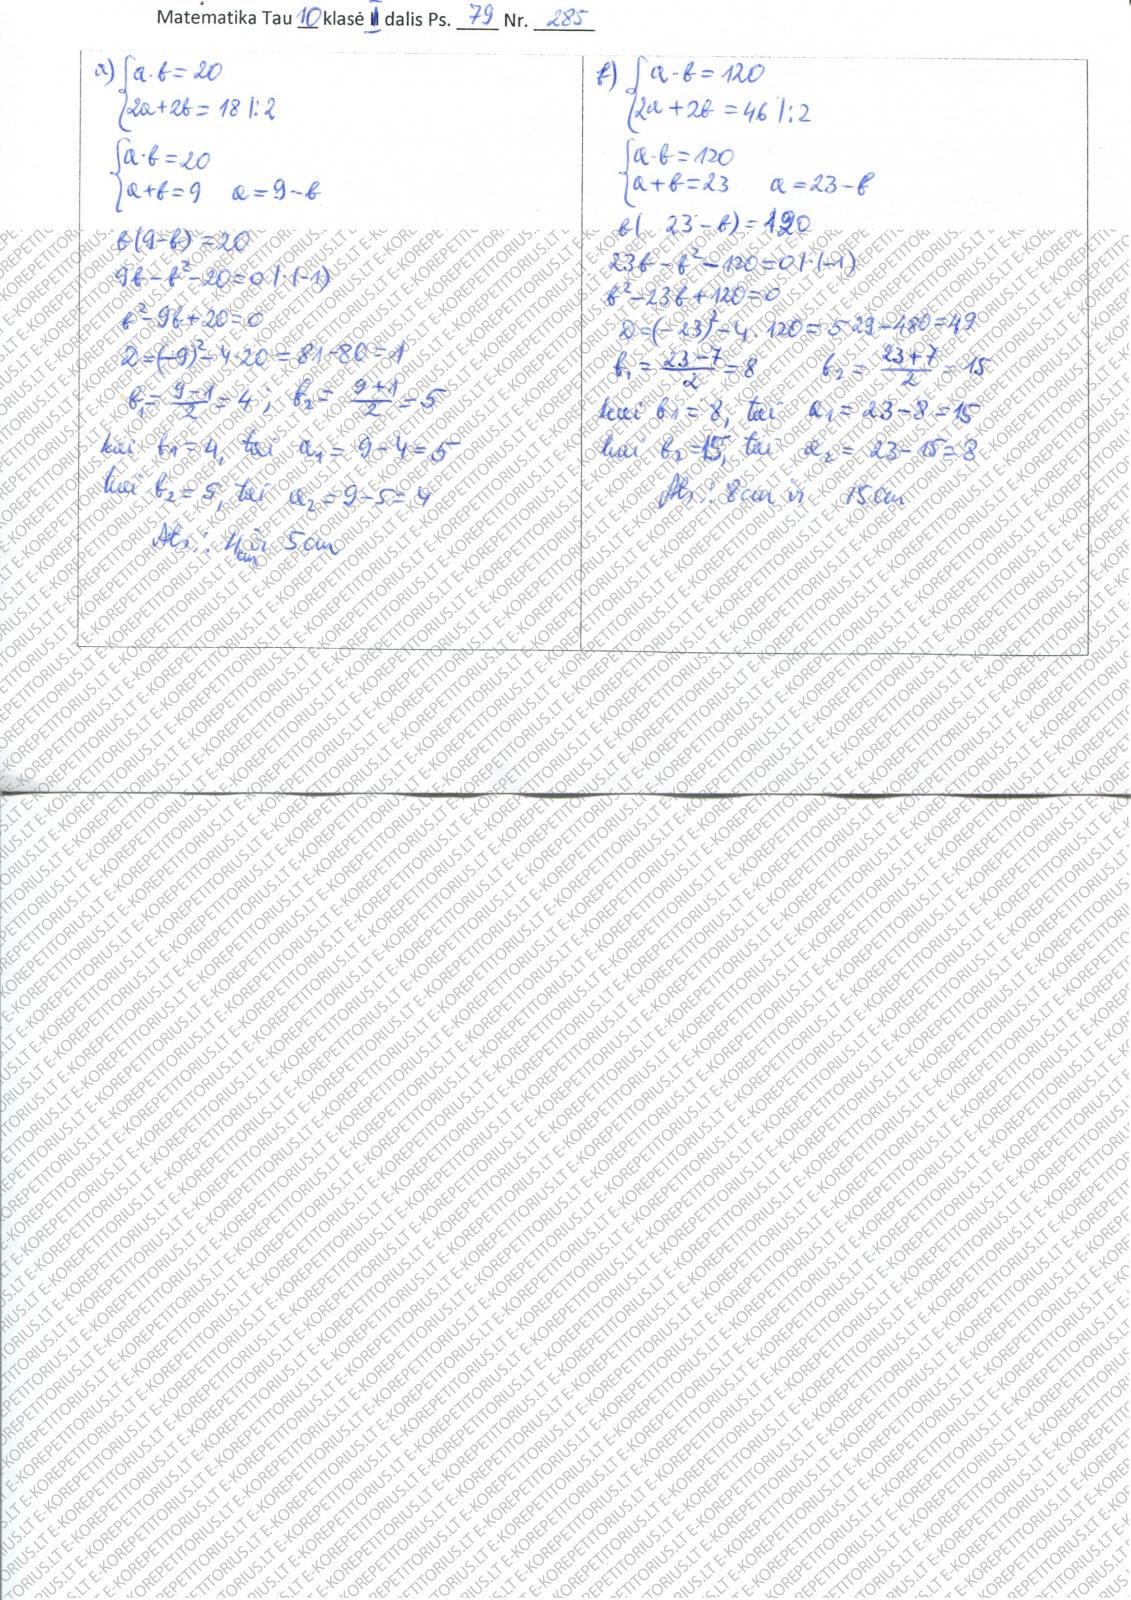 Matematika Tau 10 klasė II dalis Ps. 79 Nr. 285
a) {a·b=20
{2a+2b=18 |:2
{a·b=20
{a+b=9 a=9-b
b(9-b)=20
9b-b²-20=0 |·(-1)
b²-9b+20=0
D=(-9)²-4·20=81-80=1
b₁=(9-1)/2=4; b₂=(9+1)/2=5
kai b₁=4, tai a₁=9-4=5
kai b₂=5, tai a₂=9-5=4
Ats.: 4cm ir 5cm
b) {a·b=120
{2a+2b=46 |:2
{a·b=120
{a+b=23 a=23-b
b(23-b)=120
23b-b²-120=0 |·(-1)
b²-23b+120=0
D=(-23)²-4·120=529-480=49
b₁=(23-7)/2=8 b₂=(23+7)/2=15
kai b₁=8, tai a₁=23-8=15
kai b₂=15, tai a₂=23-15=8
Ats.: 8cm ir 15cm
E-KOREPETITORIUS.LT